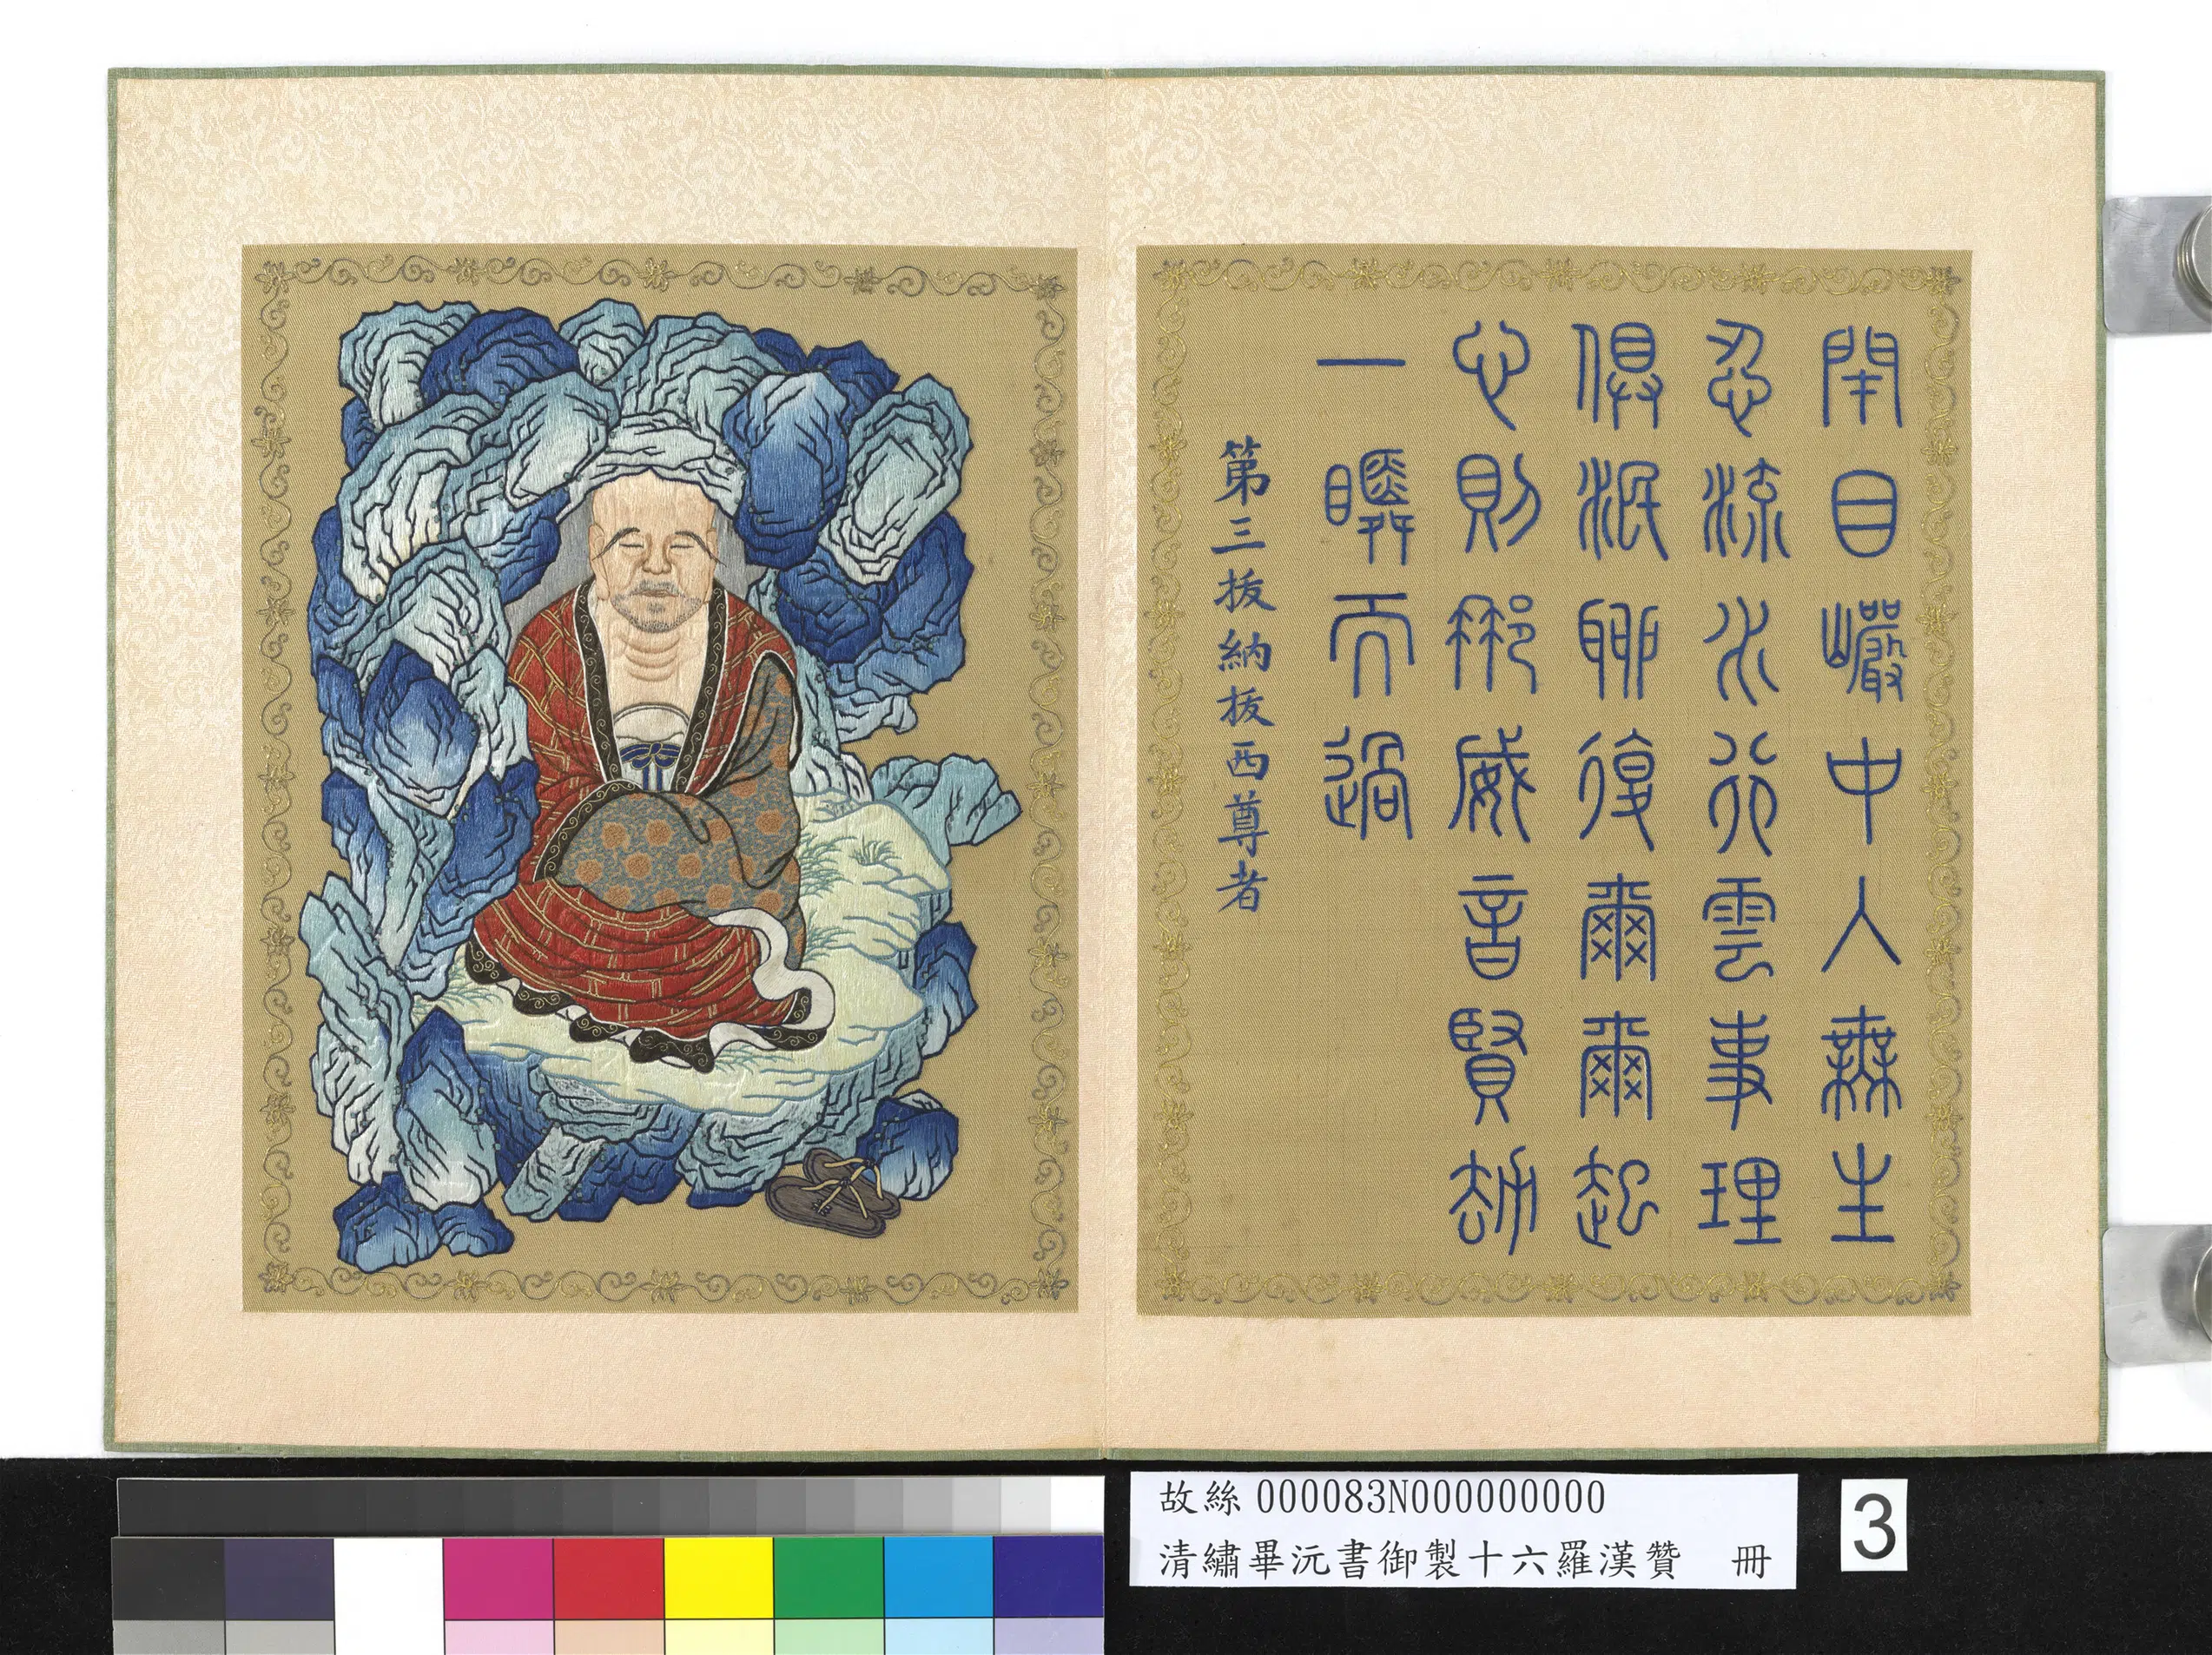 閉目巖中入無生
忍流水行雲事理
俱泯聊復爾爾起
心則那威音賢劫
一瞬而過
第三拔納拔西尊者
故絲000083N000000000
清繡畢沅書御製十六羅漢贊 冊
3